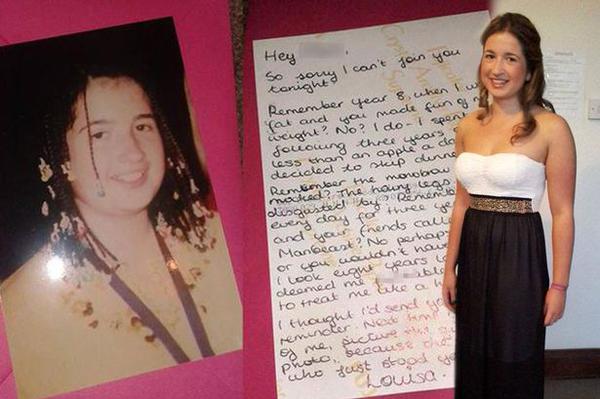 Hey
So sorry I can't join you
tonight.
Remember year 8, when I w
fat and you made fun of m
weight? No? I do - I spen
following three years
less than an apple a d
decided to skip dinn
Remember the monobrow
mocked? The hairy legs
disgusted by? Rememb
every day for three ye
and your friends call
Manbeast? No perhap
or you wouldn't have
I look eight years l
deemed me able
to treat me like a h
I thought i'd send yo
reminder. Next time
of me, picture the g
photo, because that
who just stood yo
Louisa.